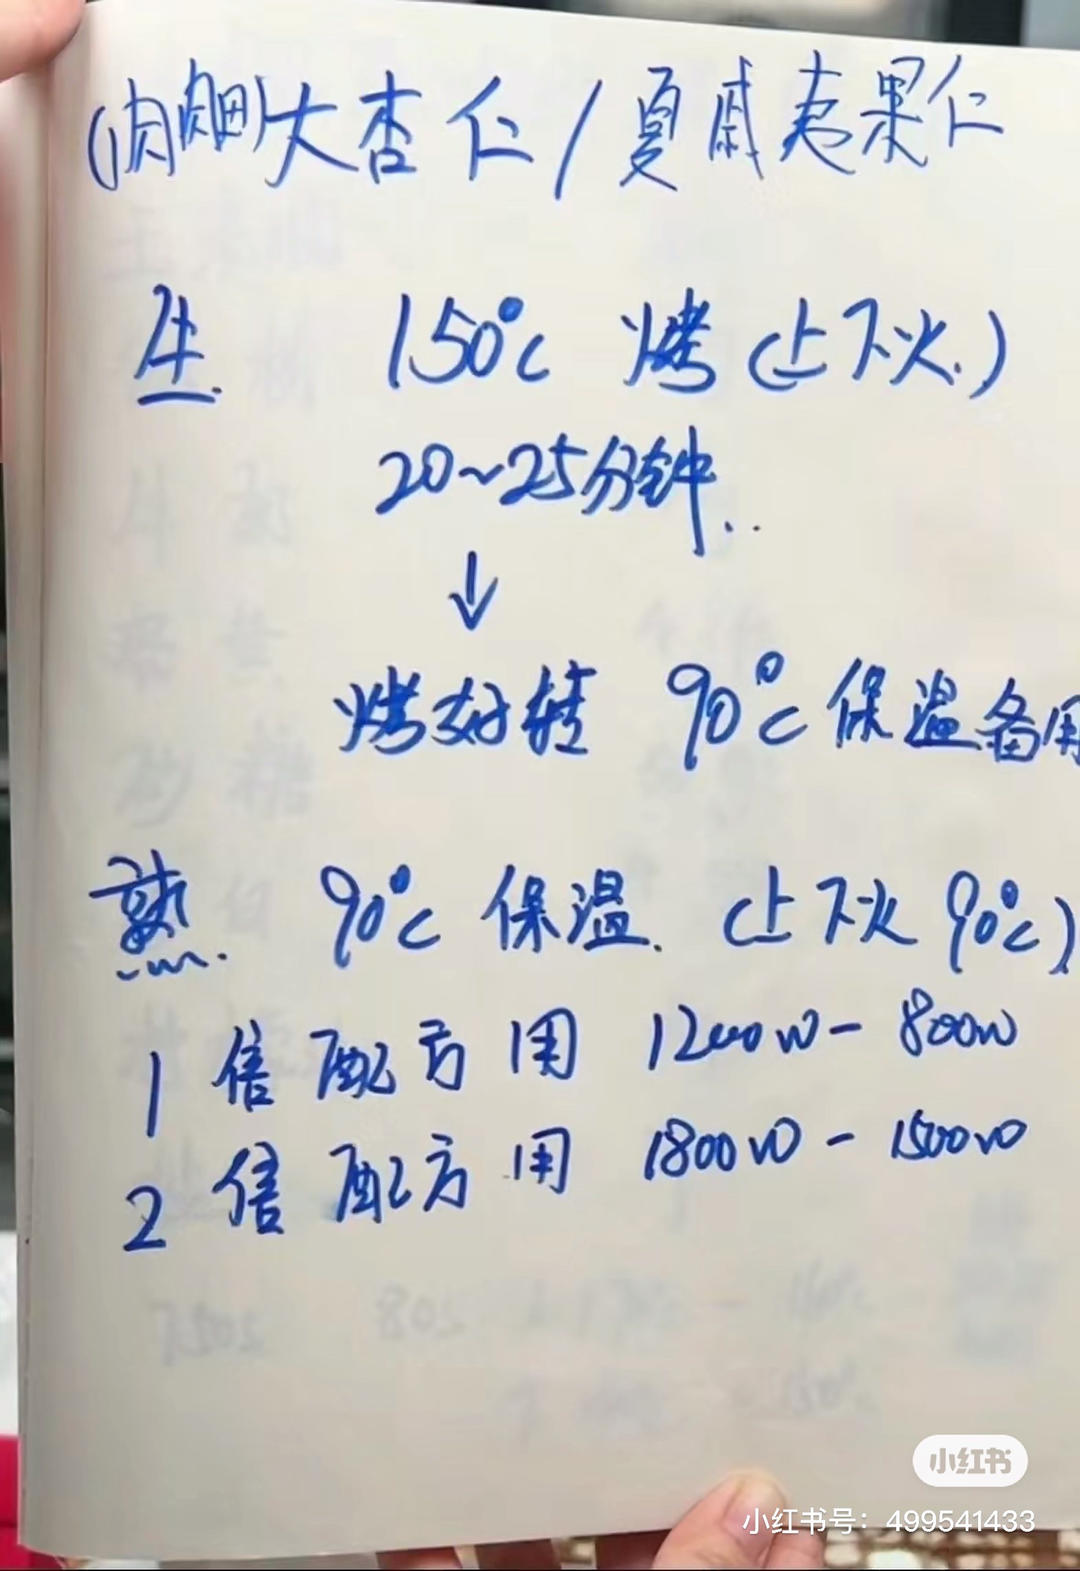 大杏仁/夏威夷果仁
生. 150°C 烤(上下火.)
20~25分钟..
↓
烤好转 90°C保温备用
熟. 90°C 保温. (上下火90°C)
1 倍配方用 1200W- 800W
2 倍配方用 1800W- 1500W
小红书
小红书号：499541433